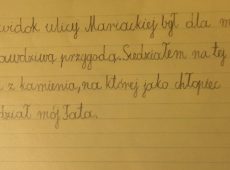 widok ulicy Mariackiej był dla m
awdziwą przygodą. Siedziałem na tej
z kamienia, na której jako chłopiec
dział mój Tata.